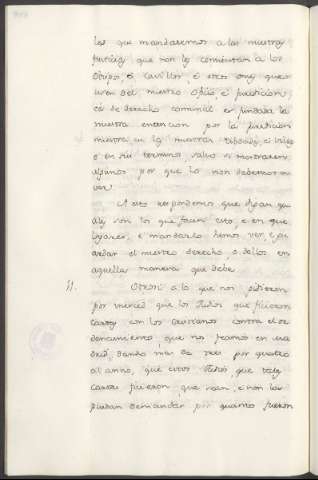 les que mandaremos a las nuestras
justicias que non lo consientan a los
Obispos, o Cavillos, o otros
uren del nuestro Ofiio, e jurediccion,
ca de derecho comunal es fundada la
nuestra entencion por la juredicion
nuestra en las nuestras e Villas
o en su termino, salvo si mostraren
algunos por que lo non debemos a
ver.
A esto respondemos que digan qua
les son los que facen esto, e en que
logares, e mandarlo hemos ver, e gu
ardar el nuestro derecho, o dellos en
aquellas manera que debe.
11. Otrosi a lo que nos pidieron
por merced que los Judios que ficieron
cartas con los Cristianos contra el or
denamiento que nos fecimos en Ma
drid, dando mas de tres por quatro
al año, que estos Judios, que tales
cartas ficieron, que non las
puedan demandar por quanto fueron